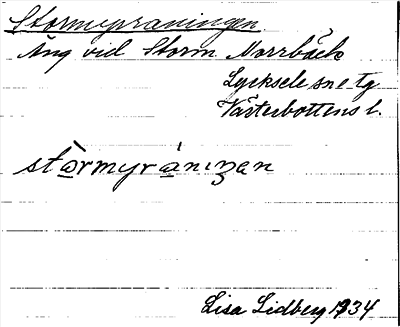 Stormyraningen
Äng vid Storm Norrbäck
Lycksele sn o tg
Västerbottens l.
stòrmyráninzen
Lisa Lidberg 1934